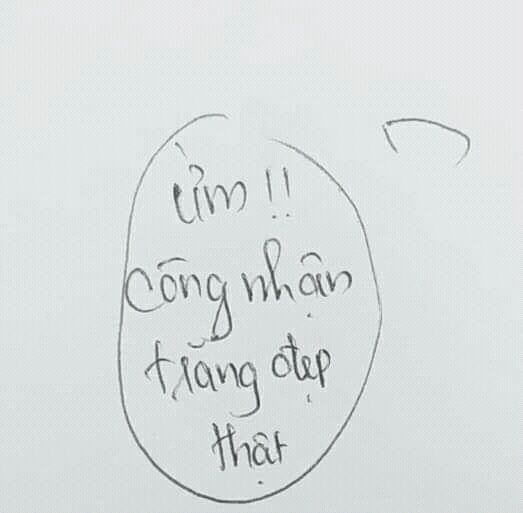 ừm !!
công nhận
trăng đẹp
thật